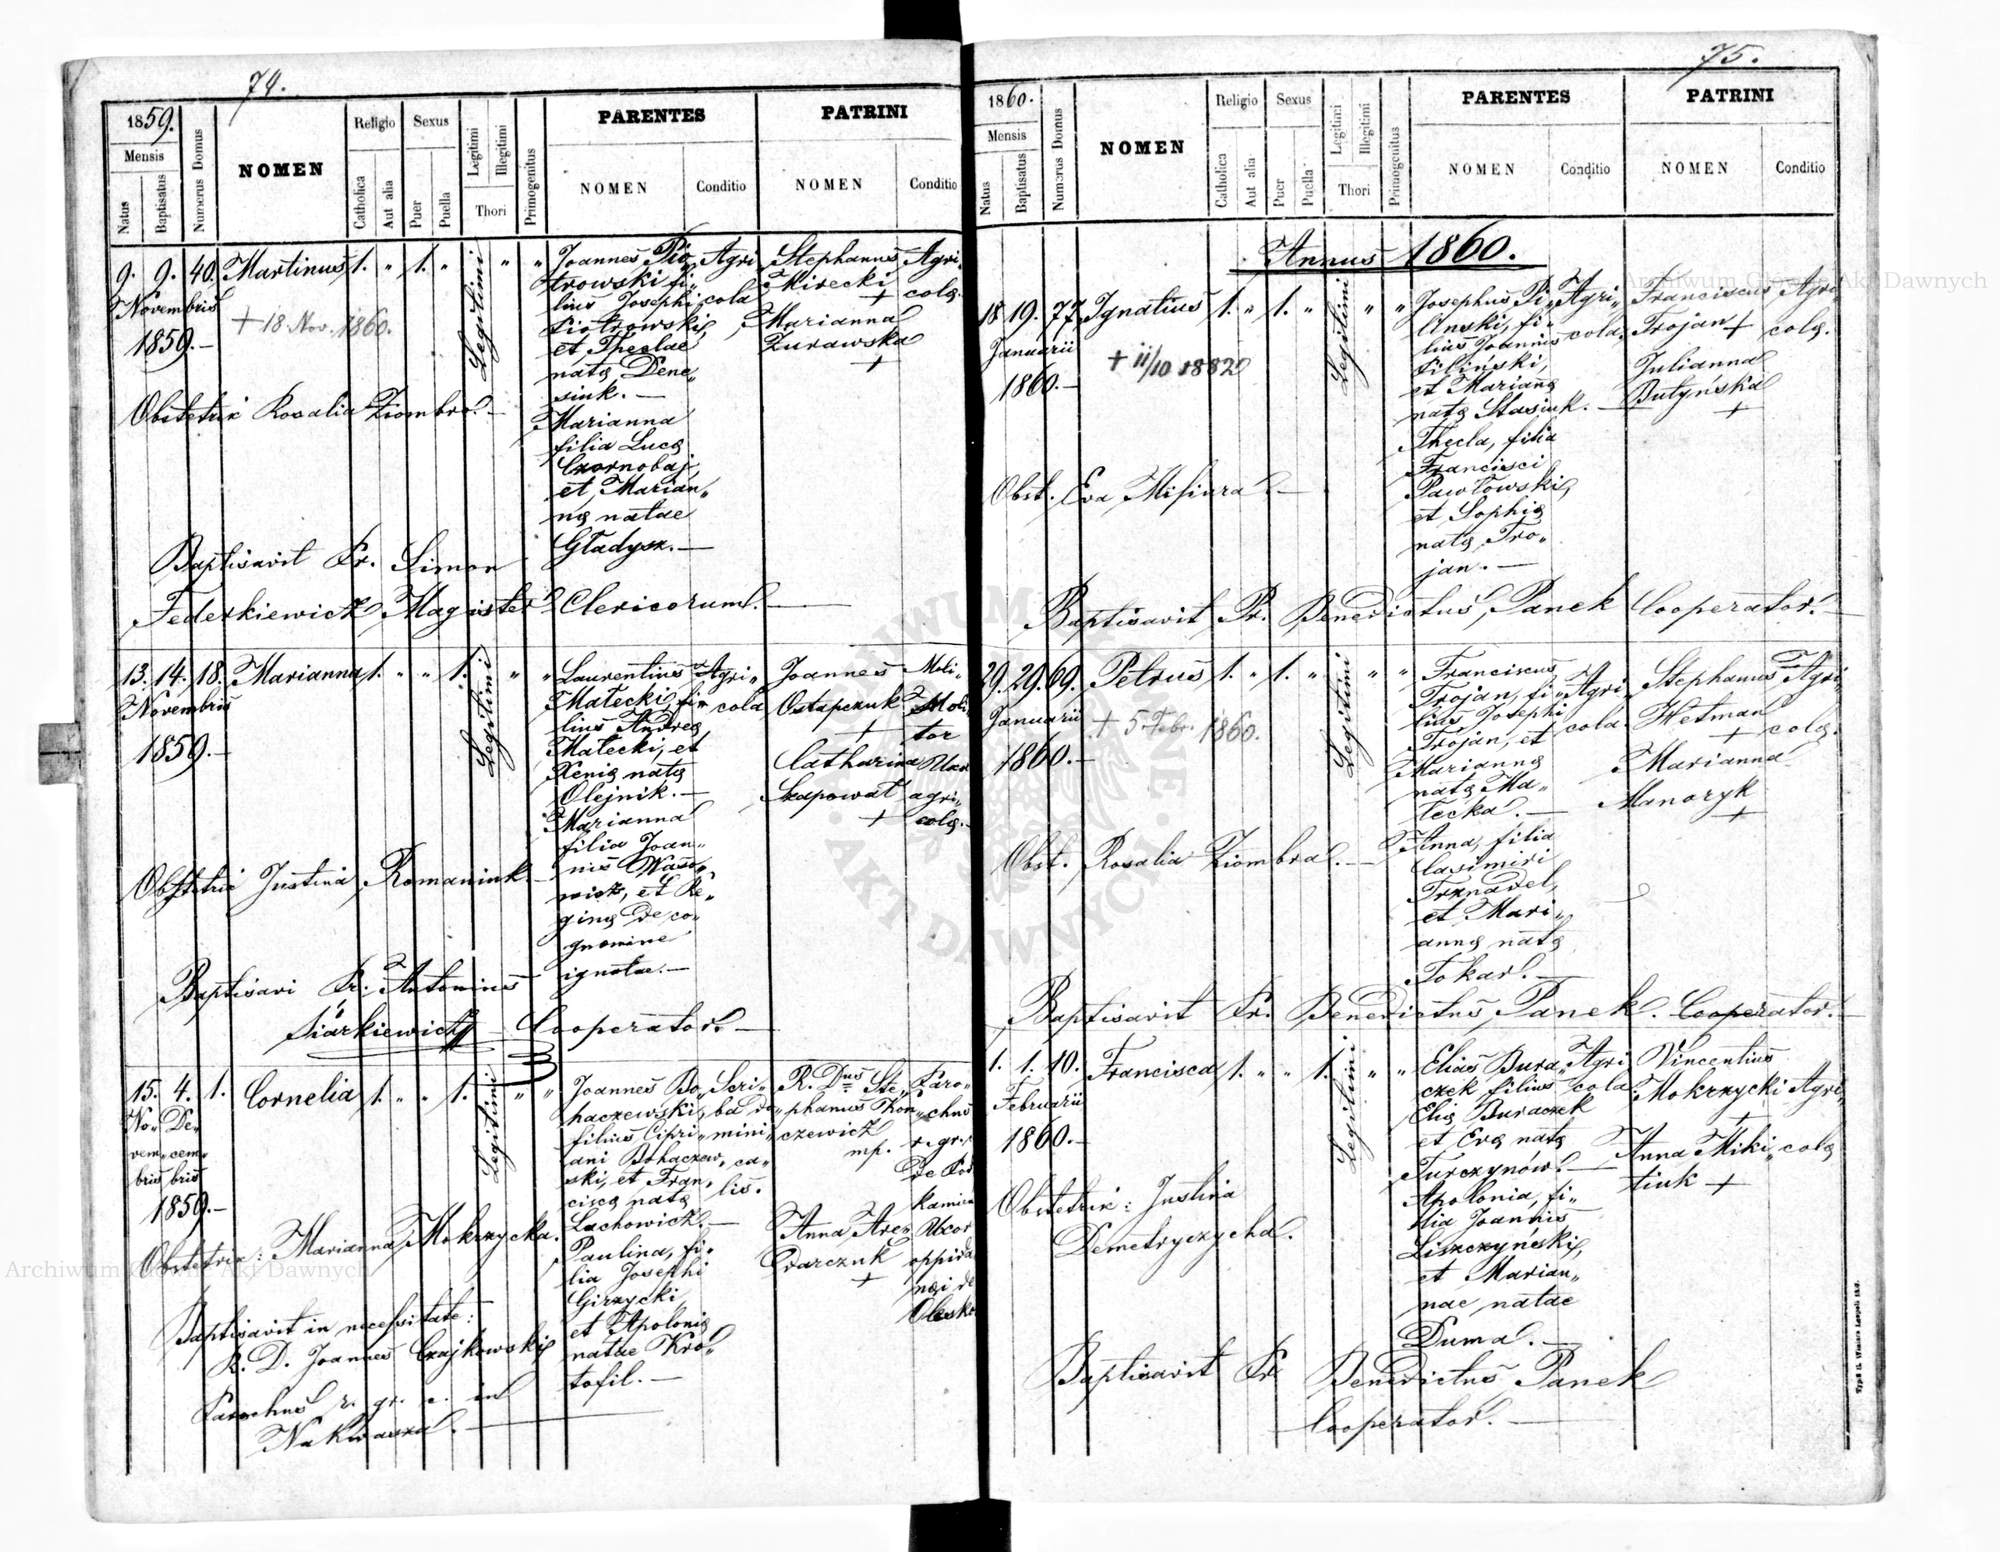 74.
1859.
Mensis
Natus
Baptisatus
Numerus Domus
NOMEN
Religio
Catholica
Aut alia
Sexus
Puer
Puella
Legitimi
Illegitimi
Thori
Primogenitus
PARENTES
NOMEN
Conditio
PATRINI
NOMEN
Conditio
9. 9. 40. Martinus 1. " 1. " Legitimi " "
Novembris
1859.—
+ 18. Nov. 1860.
Joannes Pio„
trowski fi„
lius Josephi
Piotrowski,
et Theclae
nata Dene„
sink.—
Marianna
filia Luca
Czornobaj,
et Marian„
na natae
Gładysz.—
Agri„
cola
Stephanus
Mirecki
+
Marianna
Żurawska
+
Agri„
cola.
Obstetrix Rosalia Ziombra.—
Baptisavit Fr. Simon
Federkiewicz Magister Clericorum.—
13. 14. 18. Marianna 1. " " 1. Legitimi " "
Novembris
1859.—
Laurentius
Małecki, fi„
lius Andrea
Małecki, et
Xenia nata
Olejnik.—
Marianna
filia Joan„
nis Waso„
wicz, et Re„
gina De co„
gnomine
ignotae.—
Agri„
cola
Joannes
Ostapczuk
+
Catharina
Szapował
+
Moli„
tor
Uxor
agri„
cola.
Obstetrix Justina Romaniuk.—
Baptisavi Fr. Antonius
Siarkiewicz Cooperator.—
15. 4. 1. Cornelia 1. " " 1. Legitimi " "
No„ De„
vem„ cem„
bris bris
1859.—
Joannes Bo„
haczewski,
filius Cipri„
ani Bohaczew„
ski, et Fran„
cisca nata
Lachowicz.—
Paulina, fi„
lia Josephi
Girzycki
et Apolonia
natae Kro„
tofil.—
Scri„
ba do„
mini„
ca„
lis.
R. Dnus Ste„
phanus Kon„
czewicz
mp.
Anna Are„
Darczuk
+
Paro„
chus
r. gr.
De Pod
kamien
Uxor
oppida
nei de
Olesko
Obstetrix: Marianna Mokrzycka.
Baptisavit in necessitate:
R. D. Joannes Czajkowski
Parochus r. gr. c. in
Nakwasza.—
75.
1860.
Mensis
Natus
Baptisatus
Numerus Domus
NOMEN
Religio
Catholica
Aut alia
Sexus
Puer
Puella
Legitimi
Illegitimi
Thori
Primogenitus
PARENTES
NOMEN
Conditio
PATRINI
NOMEN
Conditio
Annus 1860.
18. 19. 77. Ignatius 1. " 1. " Legitimi " "
Januarii
1860.—
+ 11/10 1882
Josephus Pi„
liński, fi„
lius Joannis
Piliński,
et Mariana
nata Stasiuk.—
Thecla, filia
Francisci
Pawłowski,
et Sophia
nata Tro„
jan.—
Agri„
cola.
Franciscus
Trojan +
Julianna
Butyńska
+
Agri„
cola.
Obst. Eva Misiura.—
Baptisavit Fr. Benedictus Panek Cooperator.—
29. 29. 69. Petrus 1. " 1. " Legitimi " "
Januarii
1860.—
+ 5. Febr. 1860.
Franciscus
Trojan, fi„
lius Josephi
Trojan, et
Marianna
nata Ma„
łecka.—
Anna, filia
Casimiri
Trznadel,
et Mari„
anna nata
Tokar.—
Agri„
cola.
Stephanus
Hetman
+
Marianna
Manoryk
+
Agri„
cola.
Obst. Rosalia Ziombra.—
Baptisavit Fr. Benedictus Panek. Cooperator.—
1. 1. 10. Francisca 1. " " 1. Legitimi " "
Februarii
1860.—
Elias Bura„
czek filius
Elia Buraczek
et Eva nata
Turczynów.—
Apolonia, fi„
lia Joannis
Liszczyński,
et Marian„
nae natae
Duma.—
Agri„
cola.
Vincentius
Mokrzycki
+
Anna Miki„
tiuk +
Agri„
cola
Obstetrix: Justina
Demetryzycha.
Baptisavit Fr. Benedictus Panek
Cooperator.—
Archiwum Główne Akt Dawnych
Archiwum Główne Akt Dawnych
ARCHIWUM GŁÓWNE · AKT DAWNYCH ·